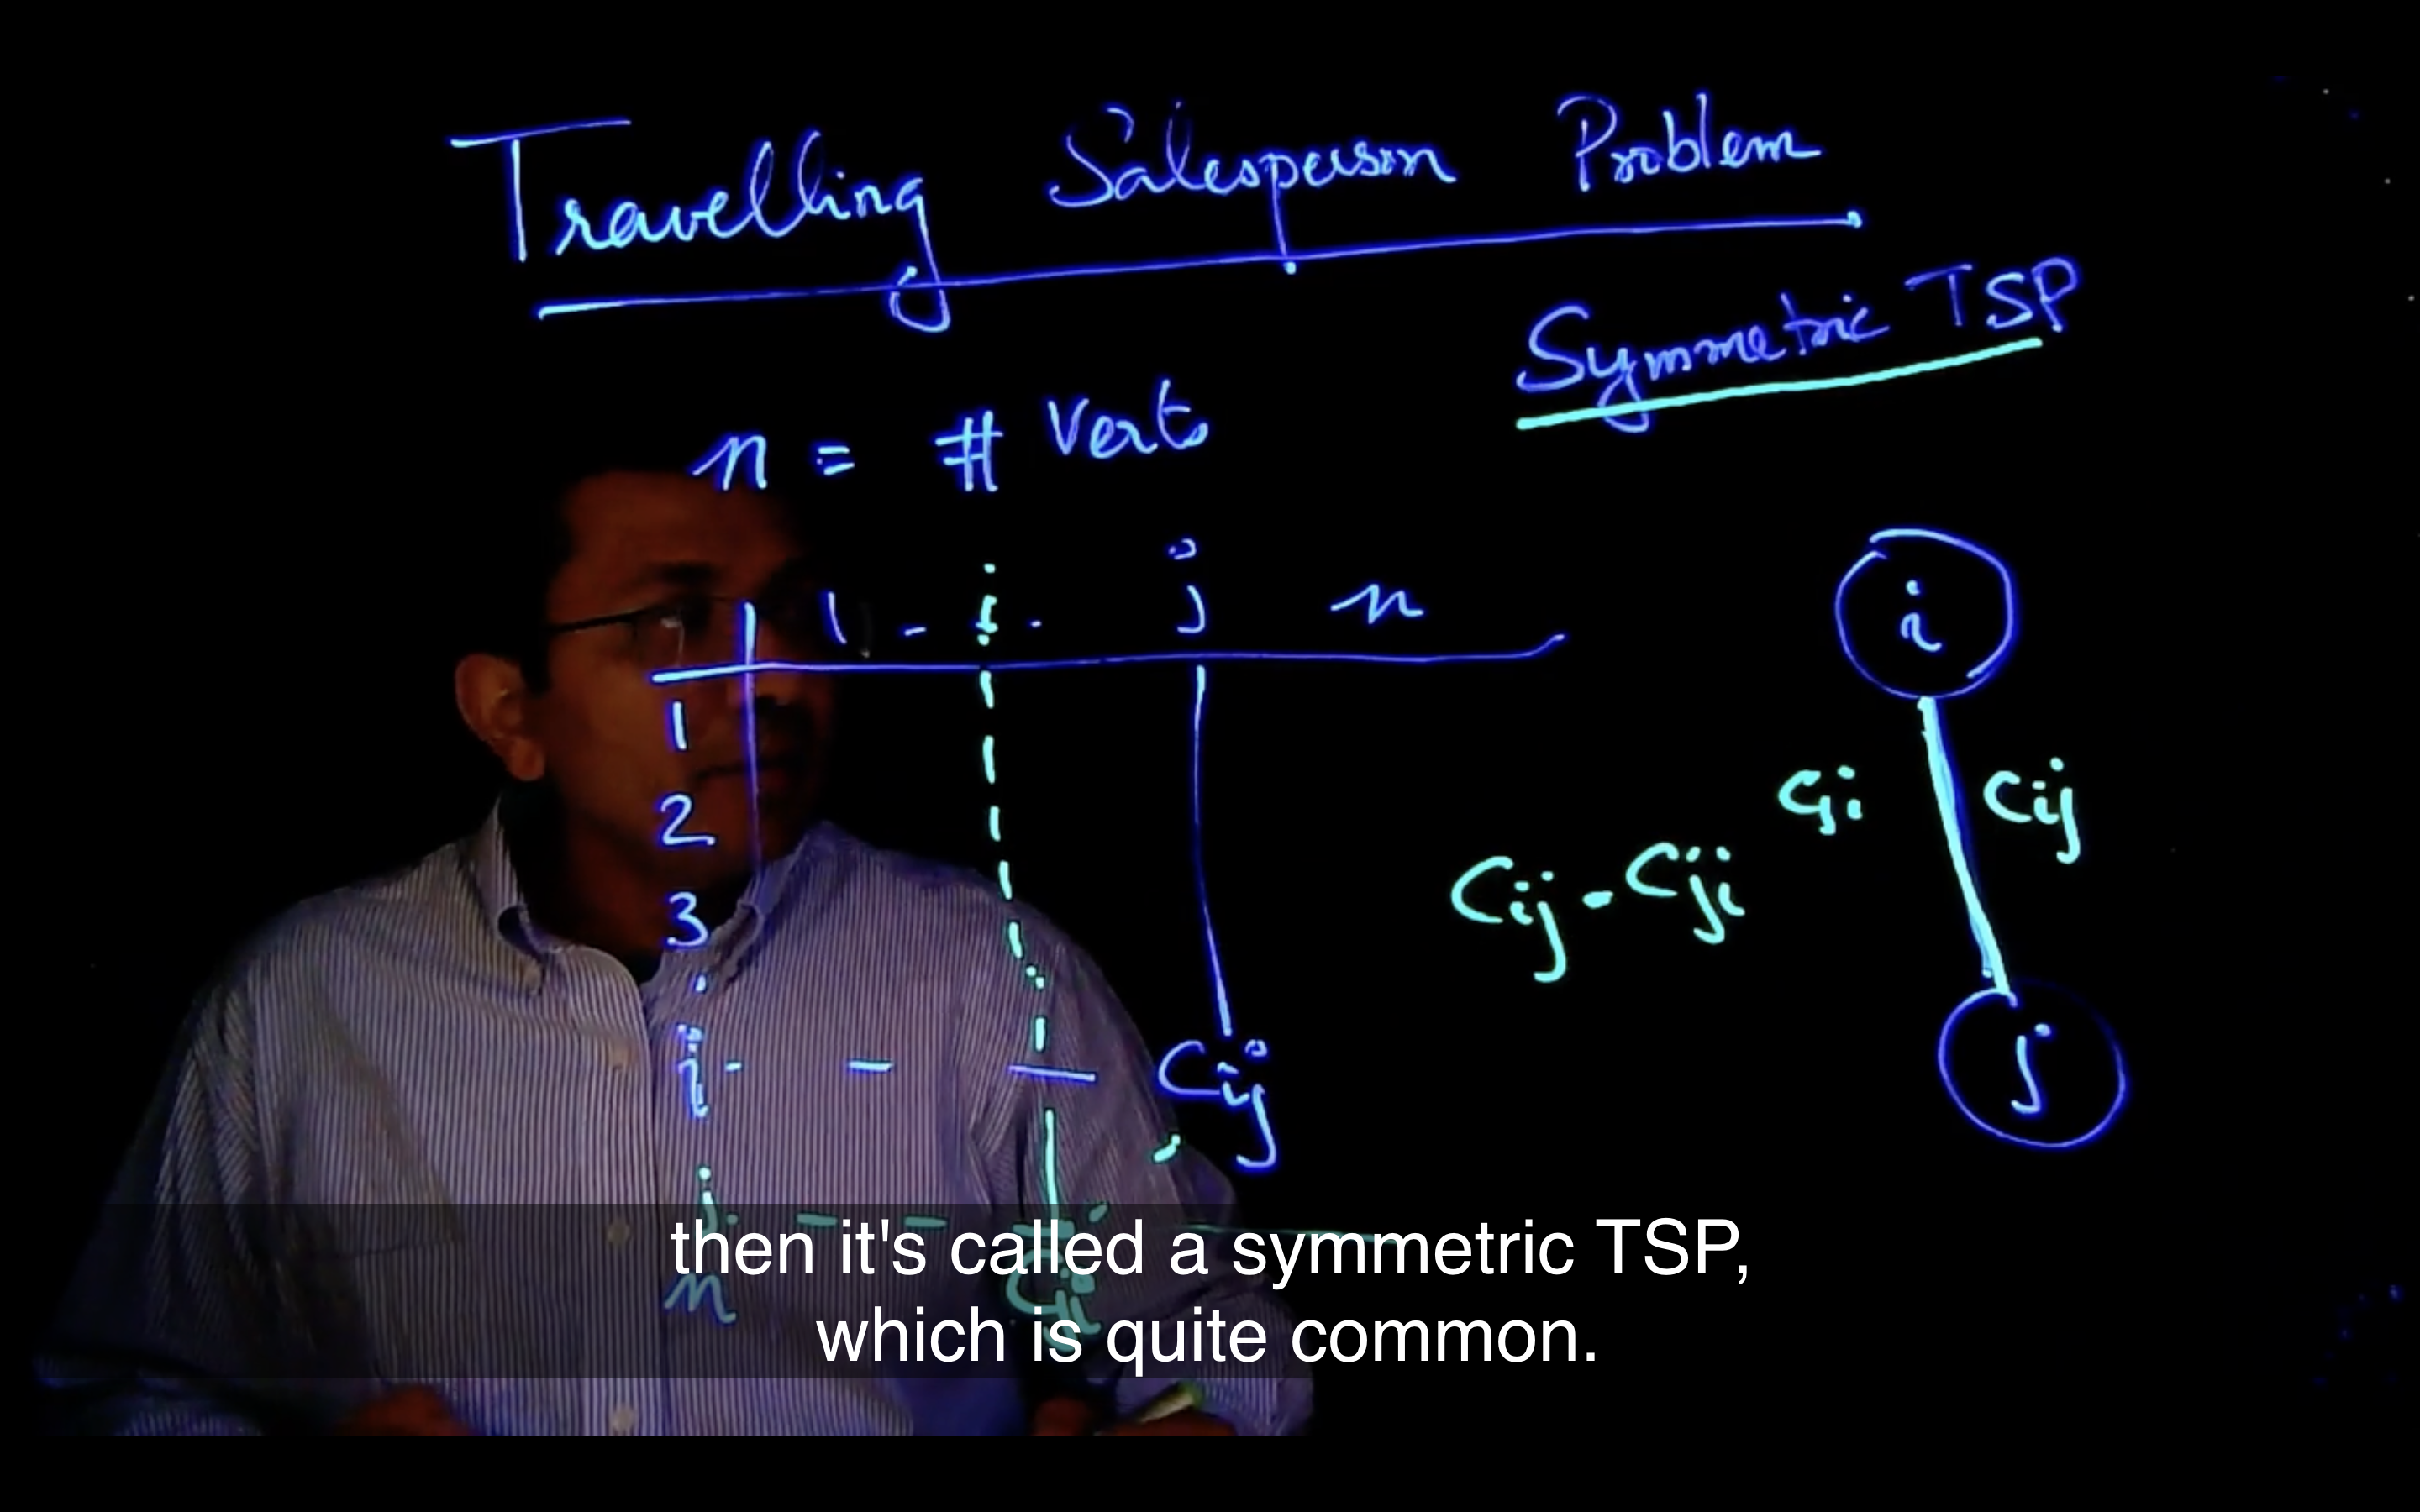 Travelling Salesperson Problem
Symmetric TSP
n = # Verts
1 - i - j n
1
2
3
i - - — Cij
j - - Cji
n
i
Cji Cij
Cij = Cji
j
then it's called a symmetric TSP,
which is quite common.